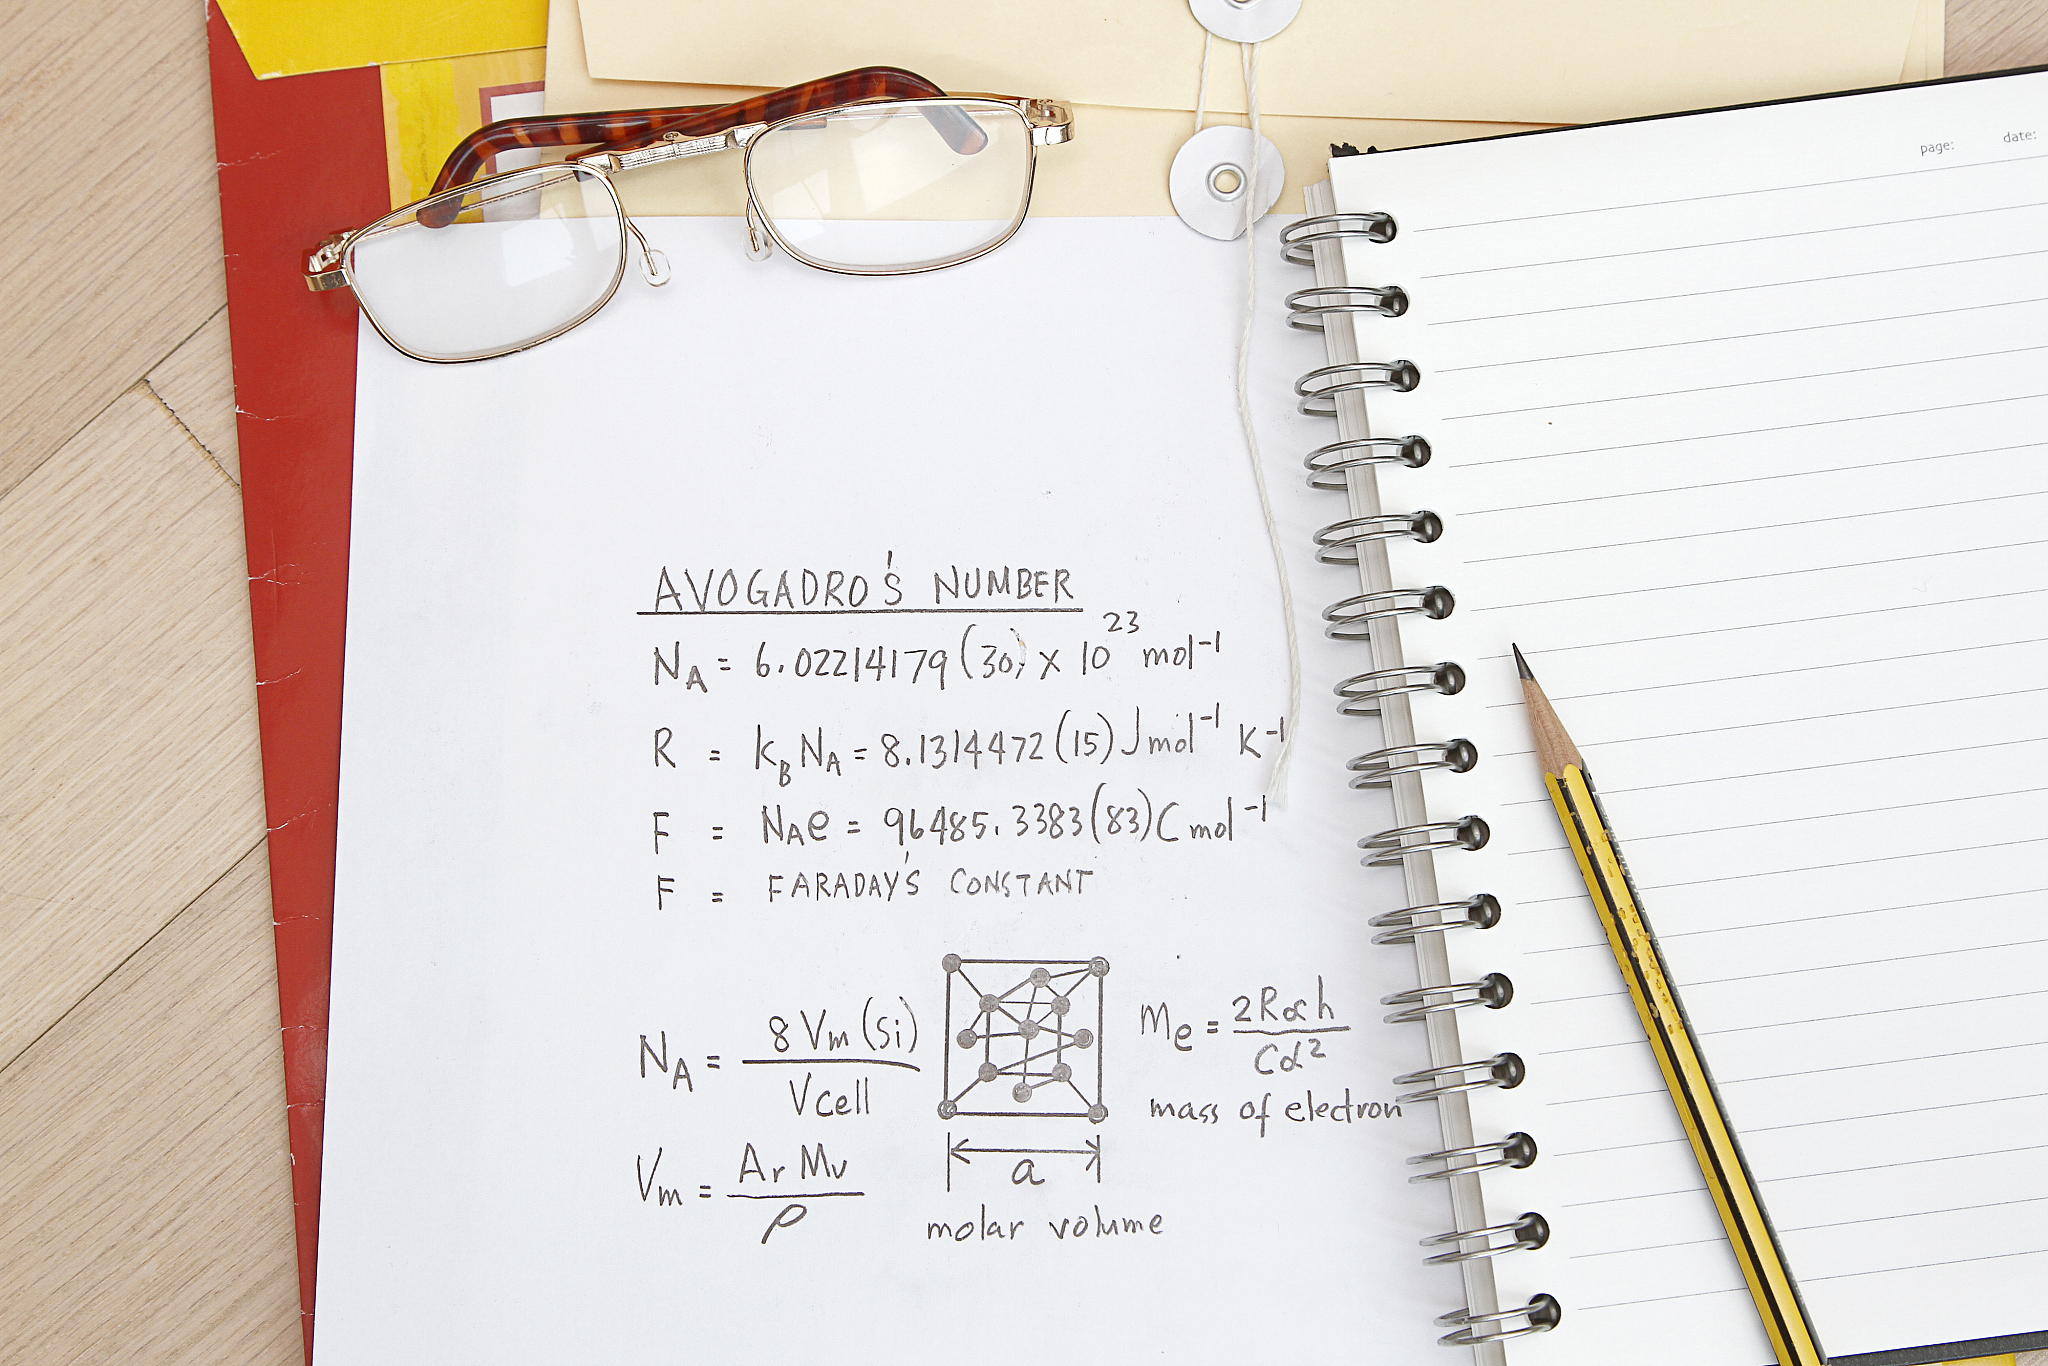 page: date:
AVOGADRO'S NUMBER
N_A = 6.02214179(30) x 10^23 mol^-1
R = k_B N_A = 8.1314472(15) J mol^-1 K^-1
F = N_A e = 96485.3383(83) C mol^-1
F = FARADAY'S CONSTANT
N_A = 8 Vm (Si) / Vcell
Me = 2R∞h / Cα^2
mass of electron
Vm = Ar Mu / ρ
a
molar volume